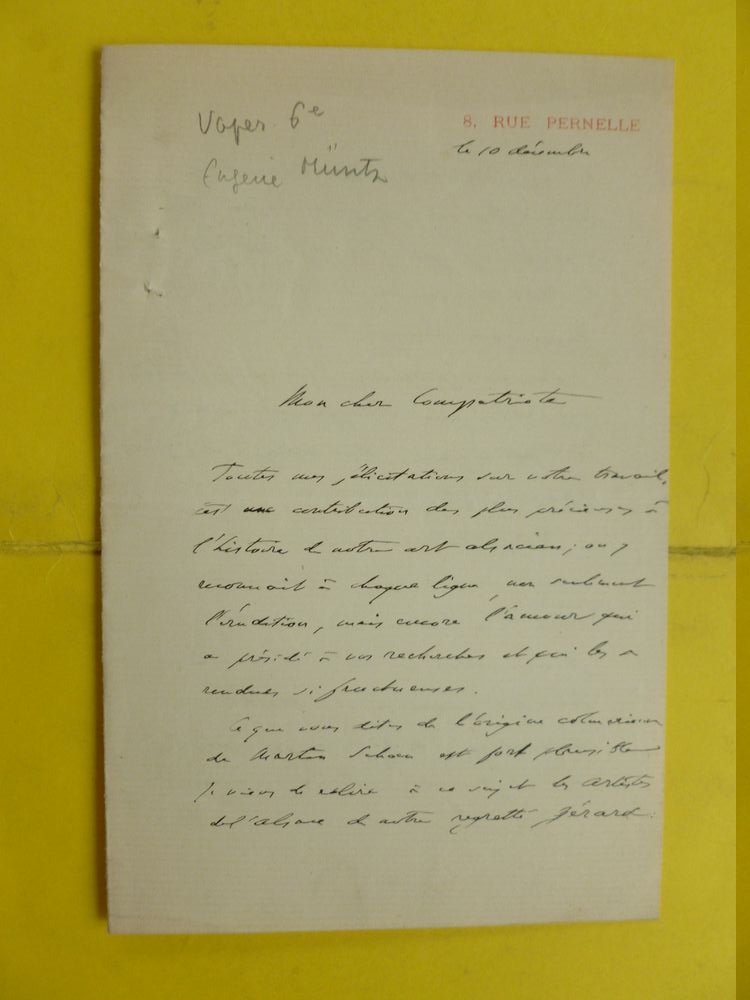 8, RUE PERNELLE
le 10 décembre
6e
Eugène Müntz
Mon cher Compatriote
Toutes mes félicitations sur votre travail,
c'est une contribution des plus précieuses à
l'histoire de notre art alsacien; on y
reconnait à chaque ligne, non seulement
l'érudition, mais encore l'amour qui
a présidé à vos recherches et qui les a
rendues si fructueuses.
Ce que vous dites de l'origine colmarienne
de Martin Schoen est fort plausible
Je viens de relire à ce sujet les Artistes
de l'Alsace de notre regretté Gérard.